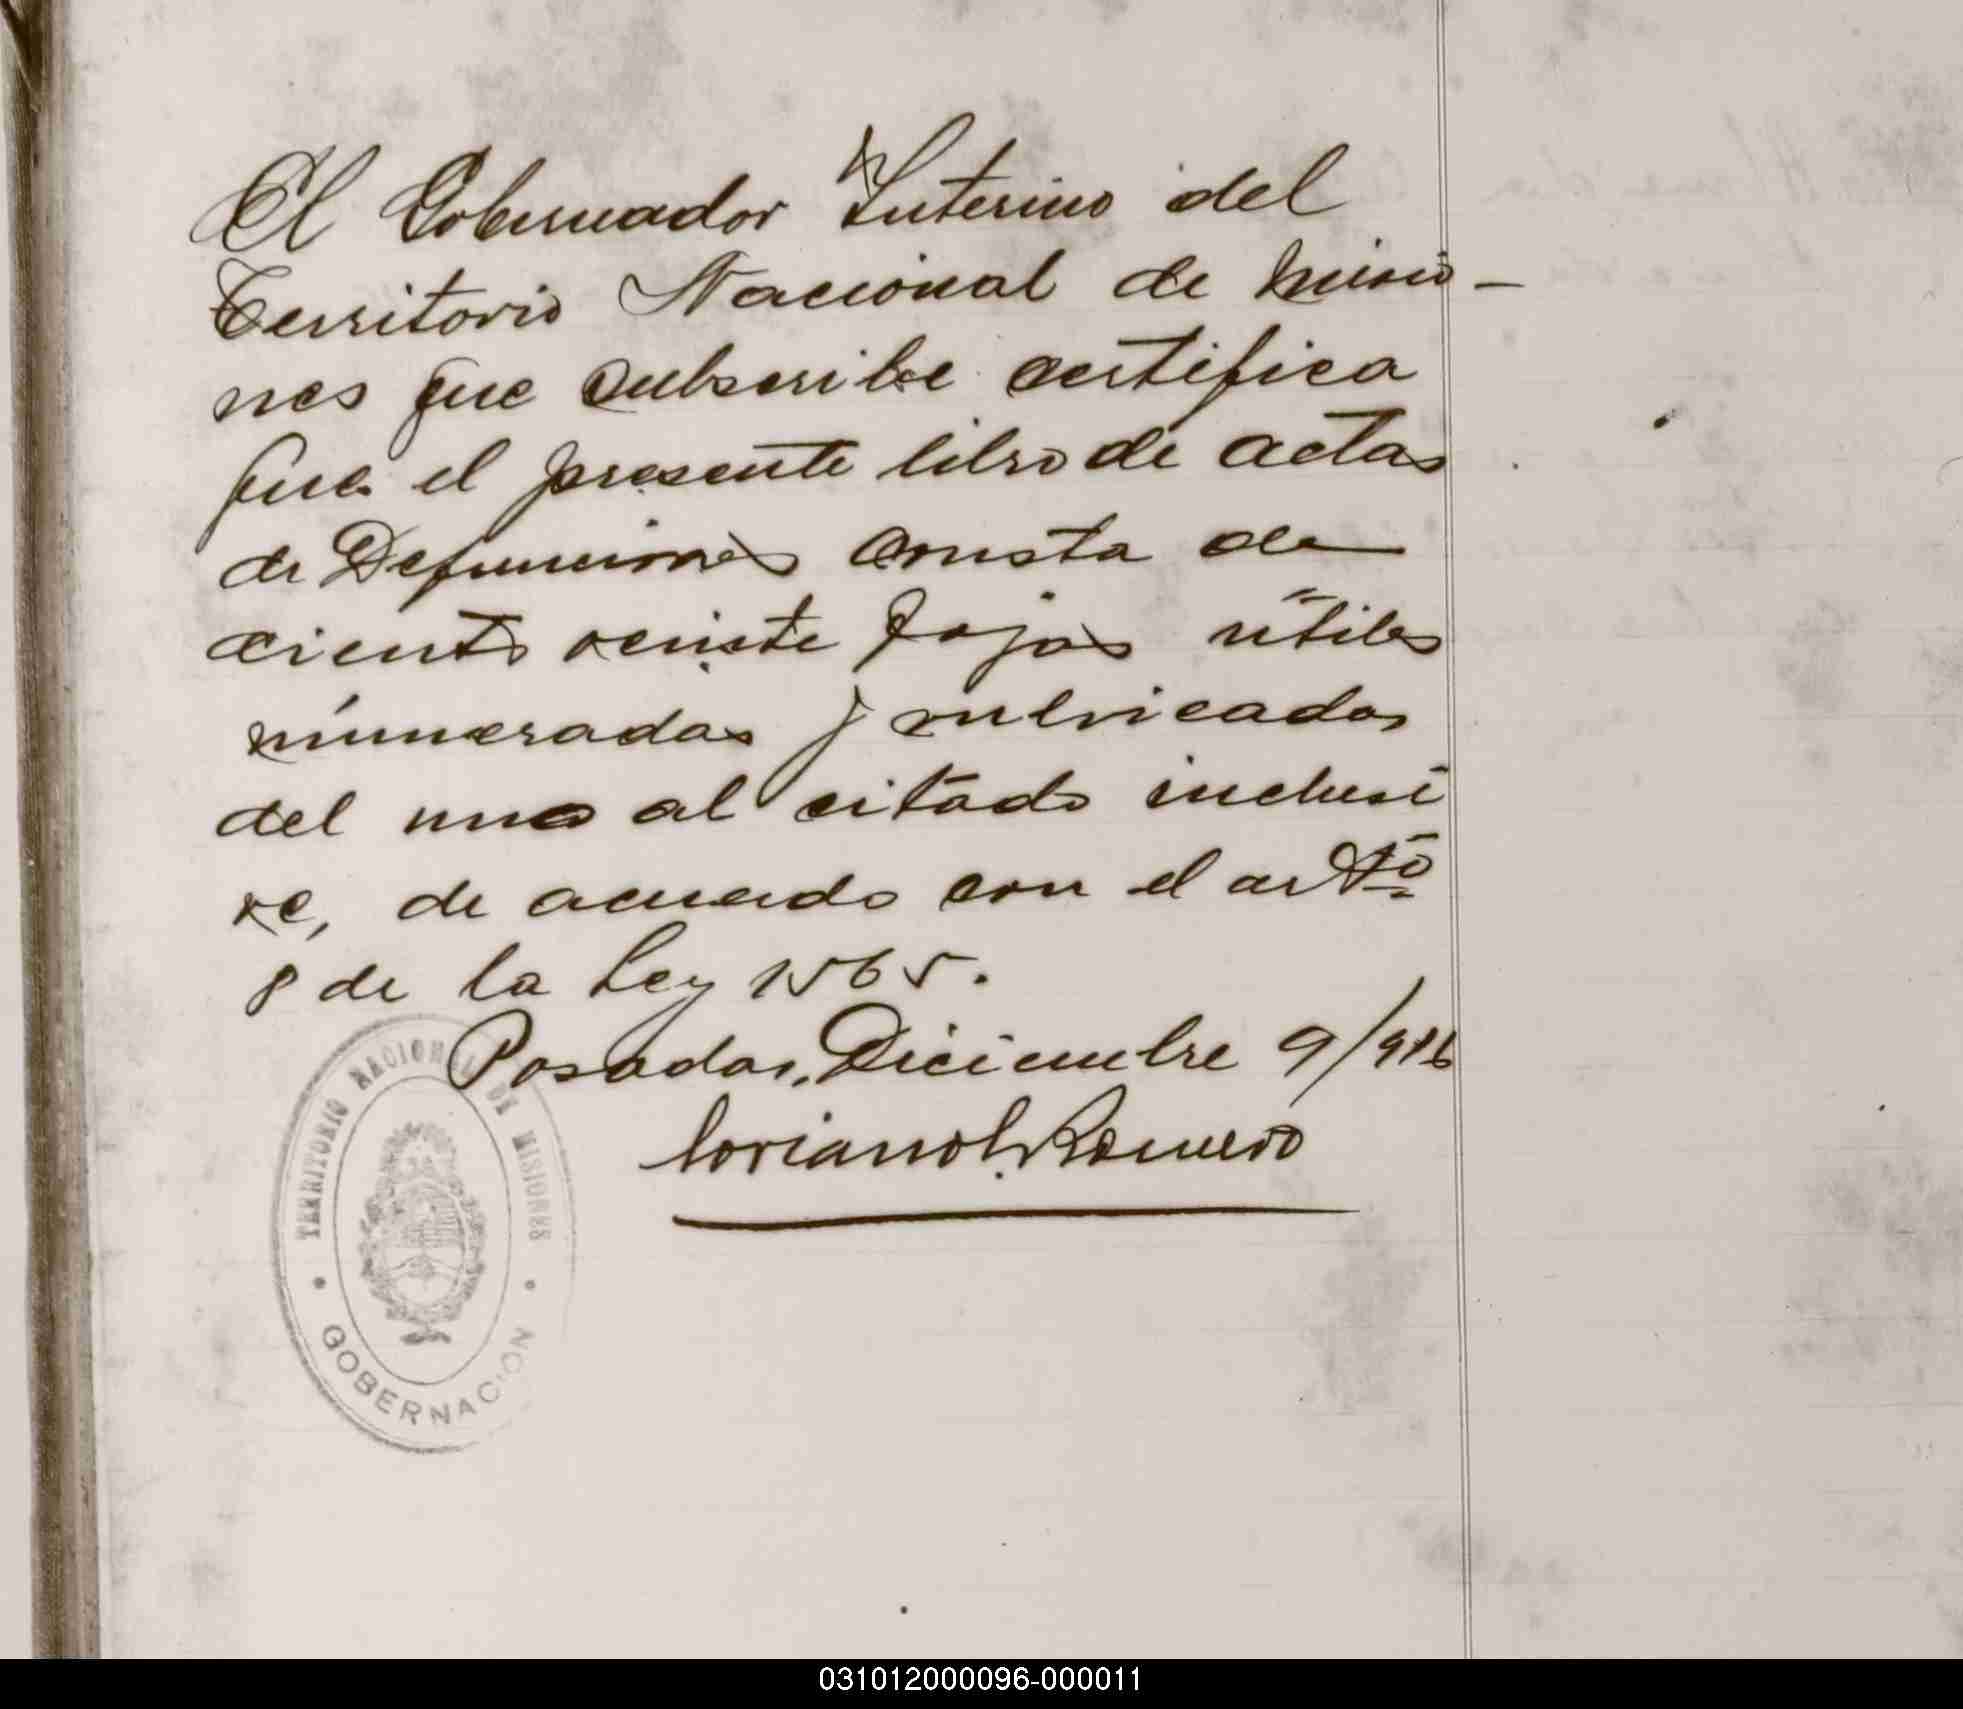 El Gobernador Interino del
Territorio Nacional de Misio-
nes que subscribe certifica
que el presente libro de actas
de Defunciones consta de
ciento veinte fojas útiles
numeradas y rubricadas
del uno al citado inclusi
ve, de acuerdo con el artº
8 de la Ley 1565.
Posadas, Diciembre 9/916
Romero
TERRITORIO NACIONAL DE MISIONES
GOBERNACIÓN
031012000096-000011